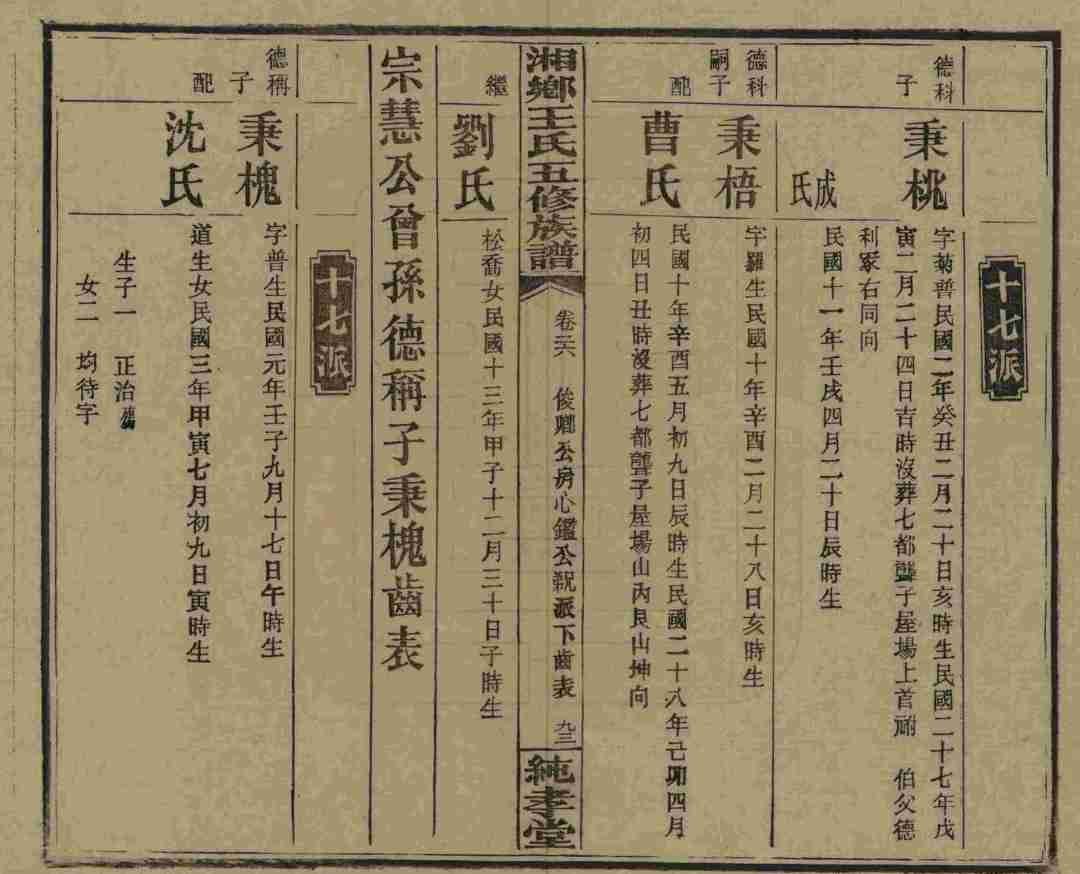 十七派
德科
子
秉桃
字菊普民國二年癸丑二月二十日亥時生民國二十七年戊
寅二月二十四日吉時沒葬七都聾子屋場上首 伯父德
利冢右同向
成氏
民國十一年壬戌四月二十日辰時生
德科
嗣子
秉梧
字羅生民國十年辛酉二月二十八日亥時生
配
曹氏
民國十年辛酉五月初九日辰時生民國二十八年己卯四月
初四日丑時沒葬七都聾子屋場山內艮山坤向
湘鄉王氏五修族譜
卷六
俊卿公房心鑑公親派下齒表
九三
純孝堂
繼
劉氏
松喬女民國十三年甲子十二月三十日子時生
宗慧公曾孫德稱子秉槐齒表
十七派
德稱
子
秉槐
字普生民國元年壬子九月十七日午時生
配
沈氏
道生女民國三年甲寅七月初九日寅時生
生子一 正治
女二 均待字